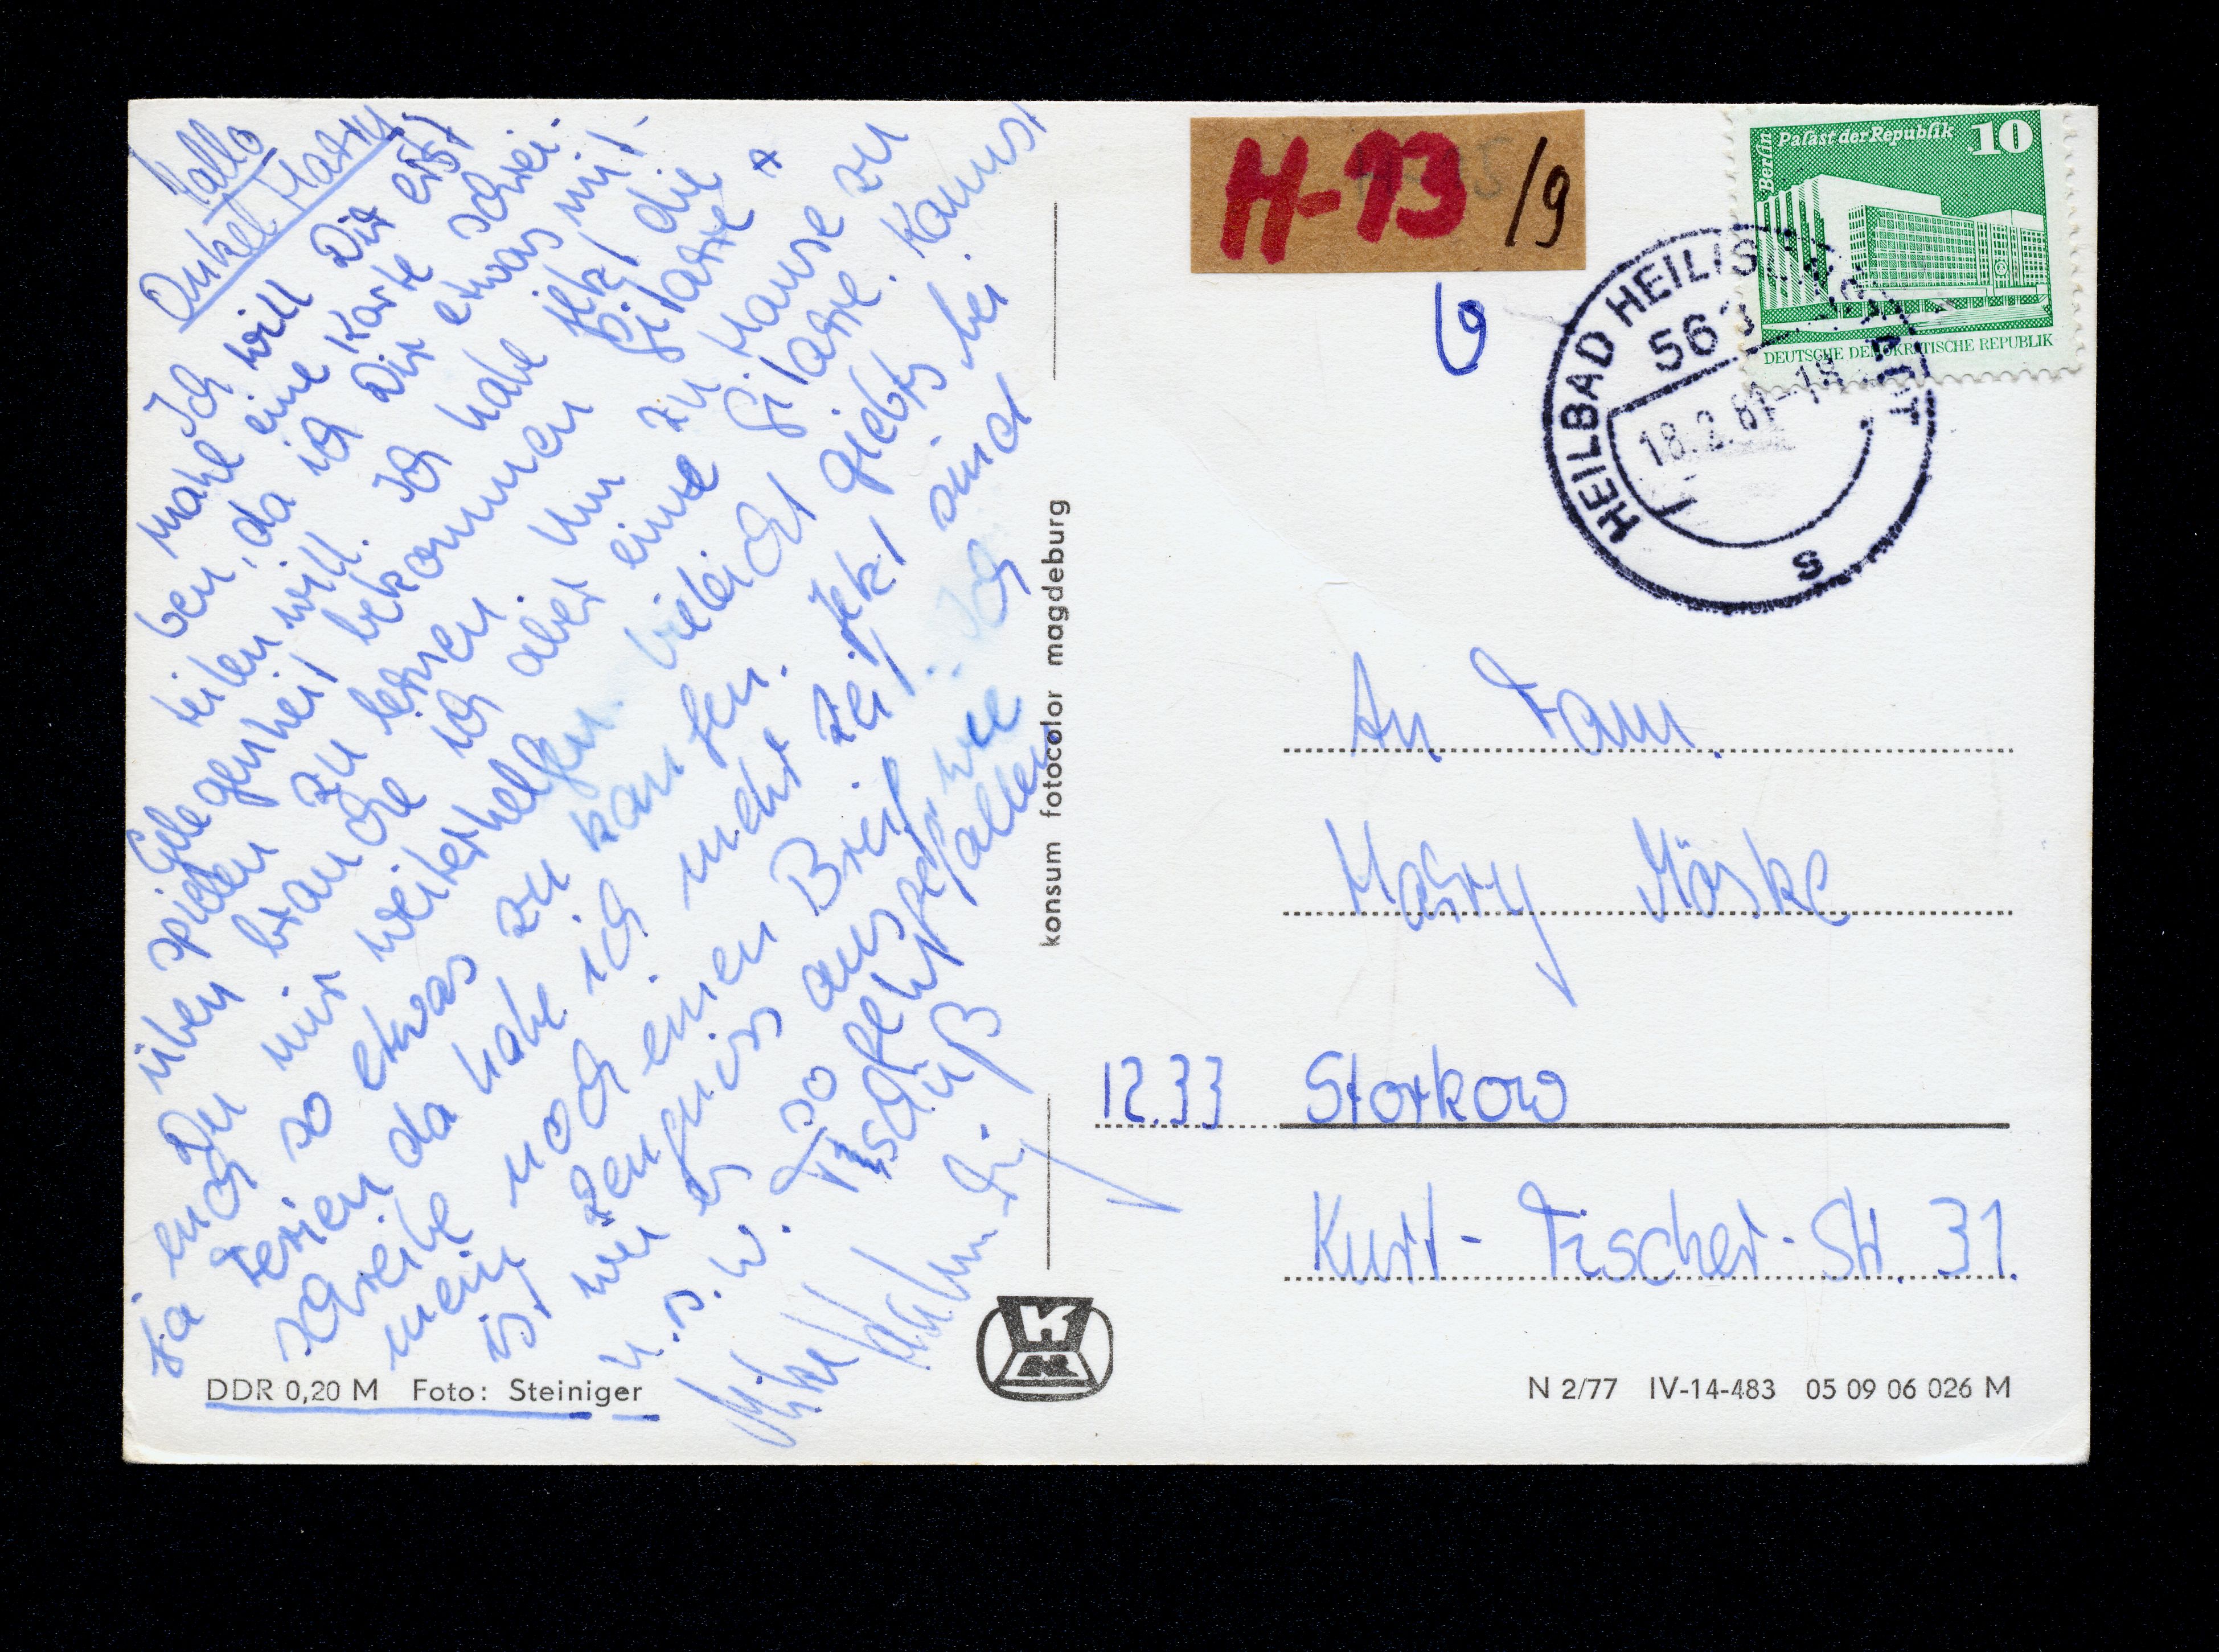 Hallo
Onkel Harry
Ich will Dir erst
mahl eine Karte schrei-
ben, da ich Dir etwas mit-
teilen will. Ich habe jetzt die
Gelegenheit bekommen Gitarre
spielen zu lernen. Um zu Hause zu
üben brauche ich aber eine Gitarre. Kannst
Du mir weiterhelfen. vieleicht giebts bei
euch so etwas zu kaufen. Jetzt sind
ja Ferien da habe ich mehr Zeit. Ich
schreibe noch einen Brief, wie
mein Zeugniss ausgefallen
ist wie es so geht
u.s.w. Tschüß
DDR 0,20 M Foto: Steiniger
konsum fotocolor magdeburg
H-13 /9
6
Berlin
Palast der Republik 10
DEUTSCHE DEMOKRATISCHE REPUBLIK
HEILBAD HEILIGENSTADT
563
18.2.81-18
s
An Fam.
Harry Möske
1233 Storkow
Kurt-Fischer-Str. 31.
N 2/77 IV-14-483 05 09 06 026 M